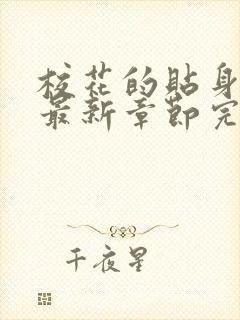 校花的贴身
最新章節完
千夜星